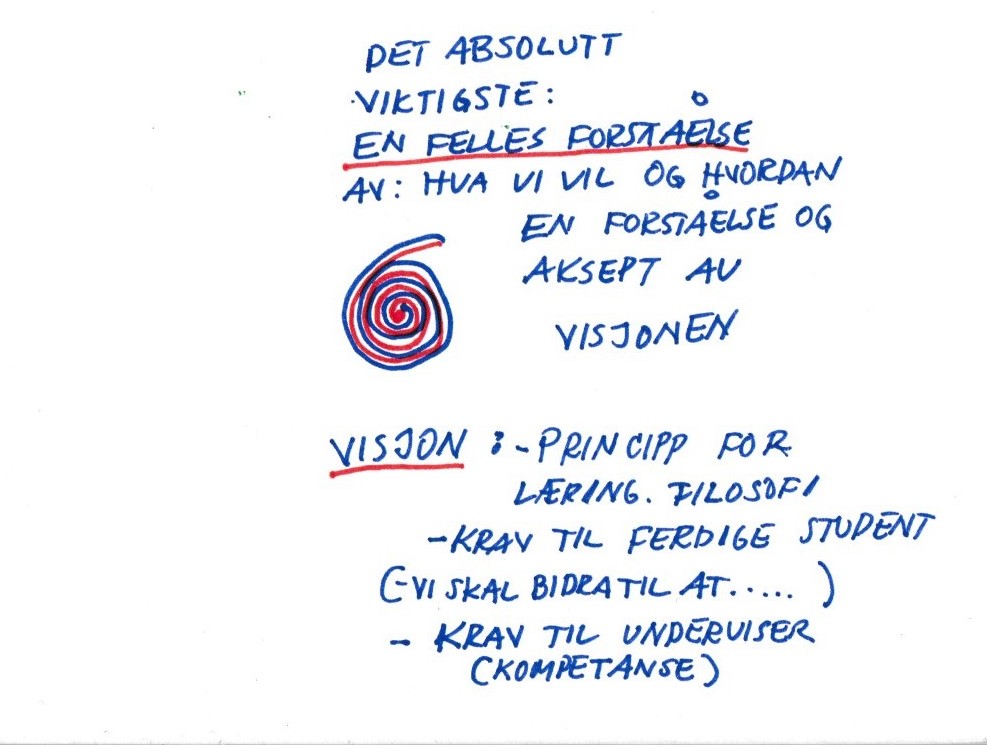 DET ABSOLUTT
VIKTIGSTE:
EN FELLES FORSTÅELSE
AV: HVA VI VIL OG HVORDAN
EN FORSTÅELSE OG
AKSEPT AV
VISJONEN
VISJON : - PRINCIPP FOR
LÆRING. FILOSOFI
- KRAV TIL FERDIGE STUDENT
(- VI SKAL BIDRA TIL AT..... )
- KRAV TIL UNDERVISER
(KOMPETANSE)